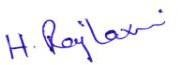 H. Rajlaxmi